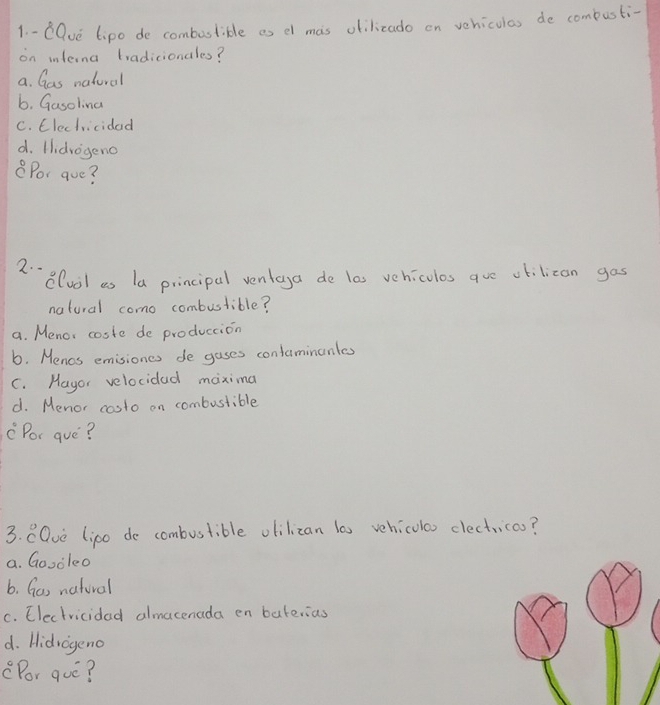 1.- ¿Qué tipo de combustible es el más utilizado en vehículos de combusti-
ón interna tradicionales?
a. Gas natural
b. Gasolina
c. Electricidad
d. Hidrógeno
¿Por que?
2.- ¿Cuál es la principal ventaja de los vehículos que utilizan gas
natural como combustible?
a. Menor coste de producción
b. Menos emisiones de gases contaminantes
c. Mayor velocidad máxima
d. Menor costo en combustible
¿Por qué?
3. ¿Qué tipo de combustible utilizan los vehículos eléctricos?
a. Gasóleo
b. Gas natural
c. Electricidad almacenada en baterías
d. Hidrógeno
¿Por qué?